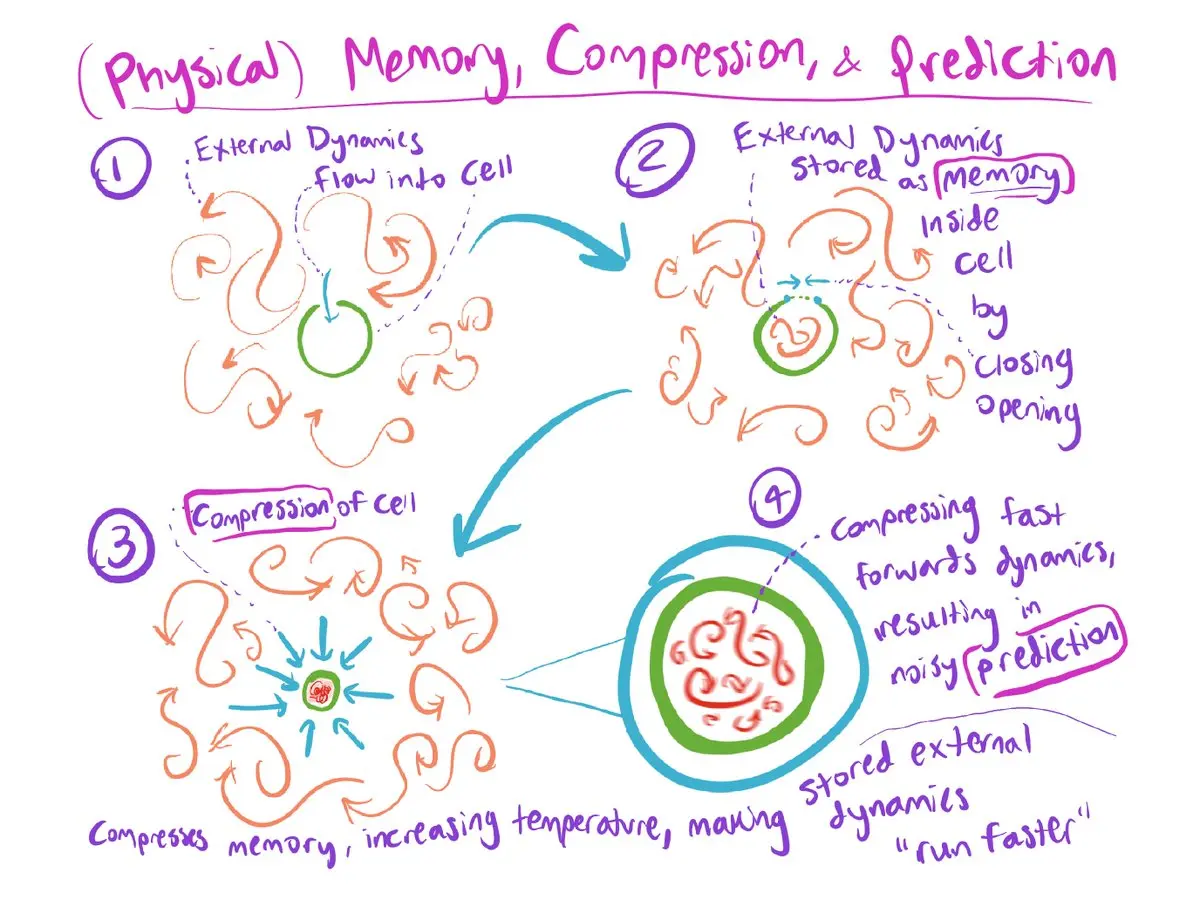 (Physical) Memory, Compression, & Prediction
1
External Dynamics
flow into cell
2
External Dynamics
stored as memory
inside
cell
by
closing
opening
3
Compression of cell
4
Compressing fast
forwards dynamics,
resulting in
noisy prediction
Compresses memory, increasing temperature, making stored external
dynamics
"run faster"